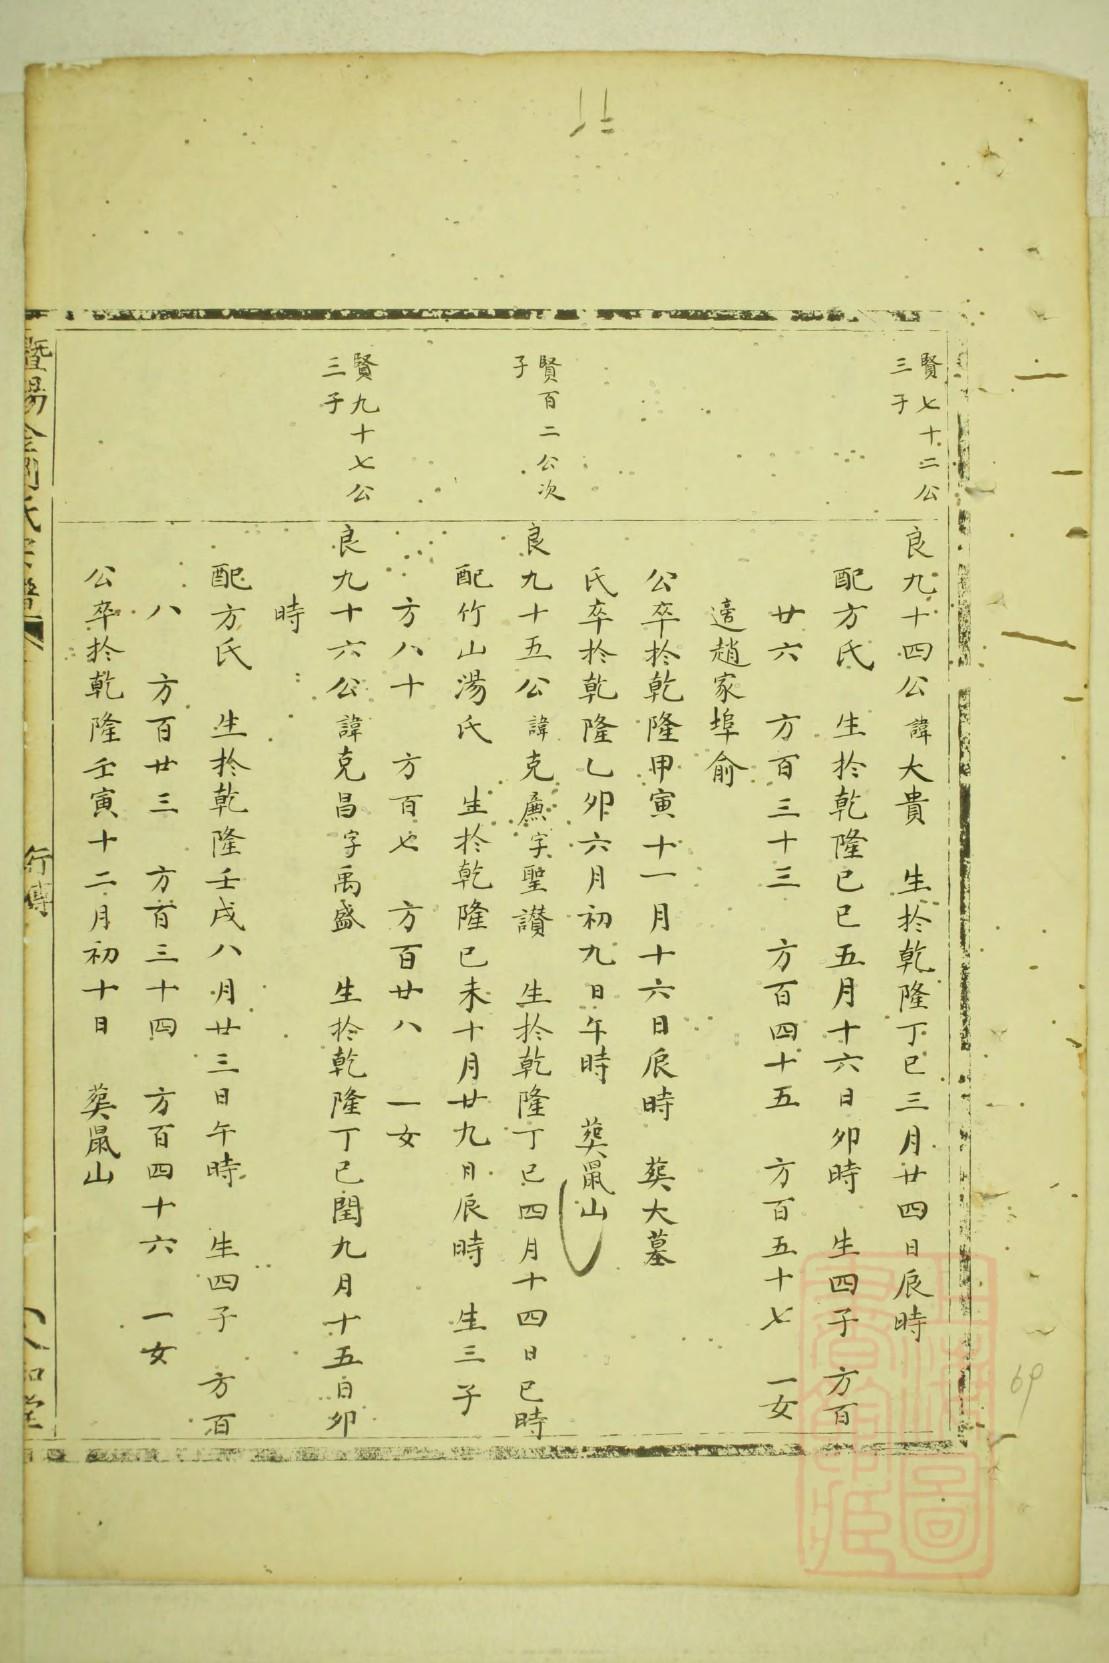 賢七十二公
三子
良九十四公諱大貴 生於乾隆丁巳三月廿四日辰時
配方氏 生於乾隆己巳五月十六日卯時 生四子 方百
廿六 方百三十三 方百四十五 方百五十七 一女
適趙家埠俞
公卒於乾隆甲寅十一月十六日辰時 葬大墓
氏卒於乾隆乙卯六月初九日午時 葬鼠山
賢百二公次
子
良九十五公諱克廉字聖讃 生於乾隆丁巳四月十四日巳時
配竹山湯氏 生於乾隆己未十月廿九日辰時 生三子
方八十 方百七 方百廿八 一女
賢九十七公
三子
良九十六公諱克昌字禹盛 生於乾隆丁巳閏九月十五日卯
時
配方氏 生於乾隆壬戌八月廿三日午時 生四子 方百
八 方百廿三 方百三十四 方百四十六 一女
公卒於乾隆壬寅十二月初十日 葬鼠山
暨陽 氏宗譜
行傳
69